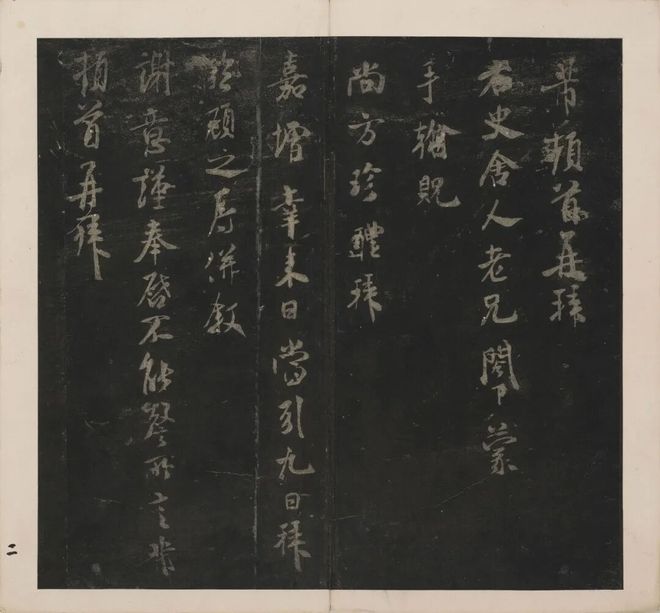 芾頓首再拜
右史舍人老兄閤下蒙
手翰貺
尚方珍醴拜
嘉增幸来日當引九日拜
臨顧之辱併叙
謝意謹奉啓不能盡所言芾
頓首再拜
二